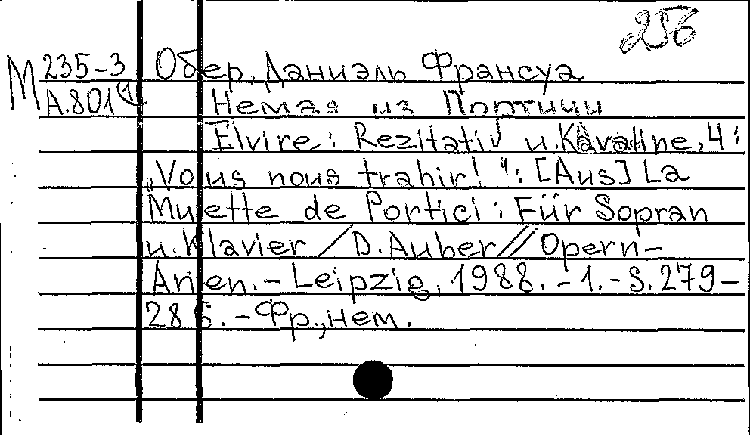 256
М 235-3 Обер, Даниэль Франсуа
А.801 Немая из Портичи
Elvire: Rezitativ u. Kavatine, 4:
„Vous nous trahir!": [Aus] La
Muette de Portici: Für Sopran
u. Klavier / D. Auber // Opern-
Arien. - Leipzig, 1988. - 1. - S. 279-
286. - Фр., нем.